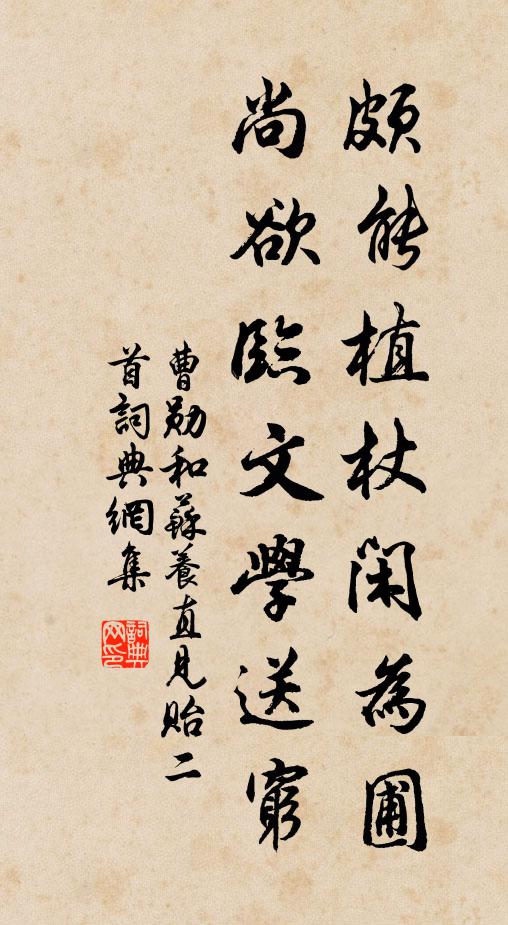 頗能植杖閑為圃
尚欲臨文學送窮
曹勛和蘇養直見貽二
首詞典網集
詞典
网印